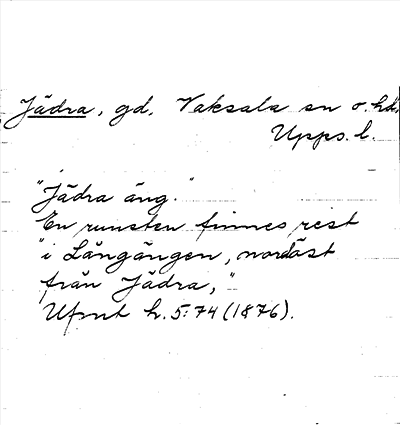 Jädra, gd. Vaksala sn o. hd.
Upps. l.
"Jädra äng."
En runsten finnes rest
"i Långängen, nordöst
från Jädra,"
Ufmt h. 5:74 (1876).